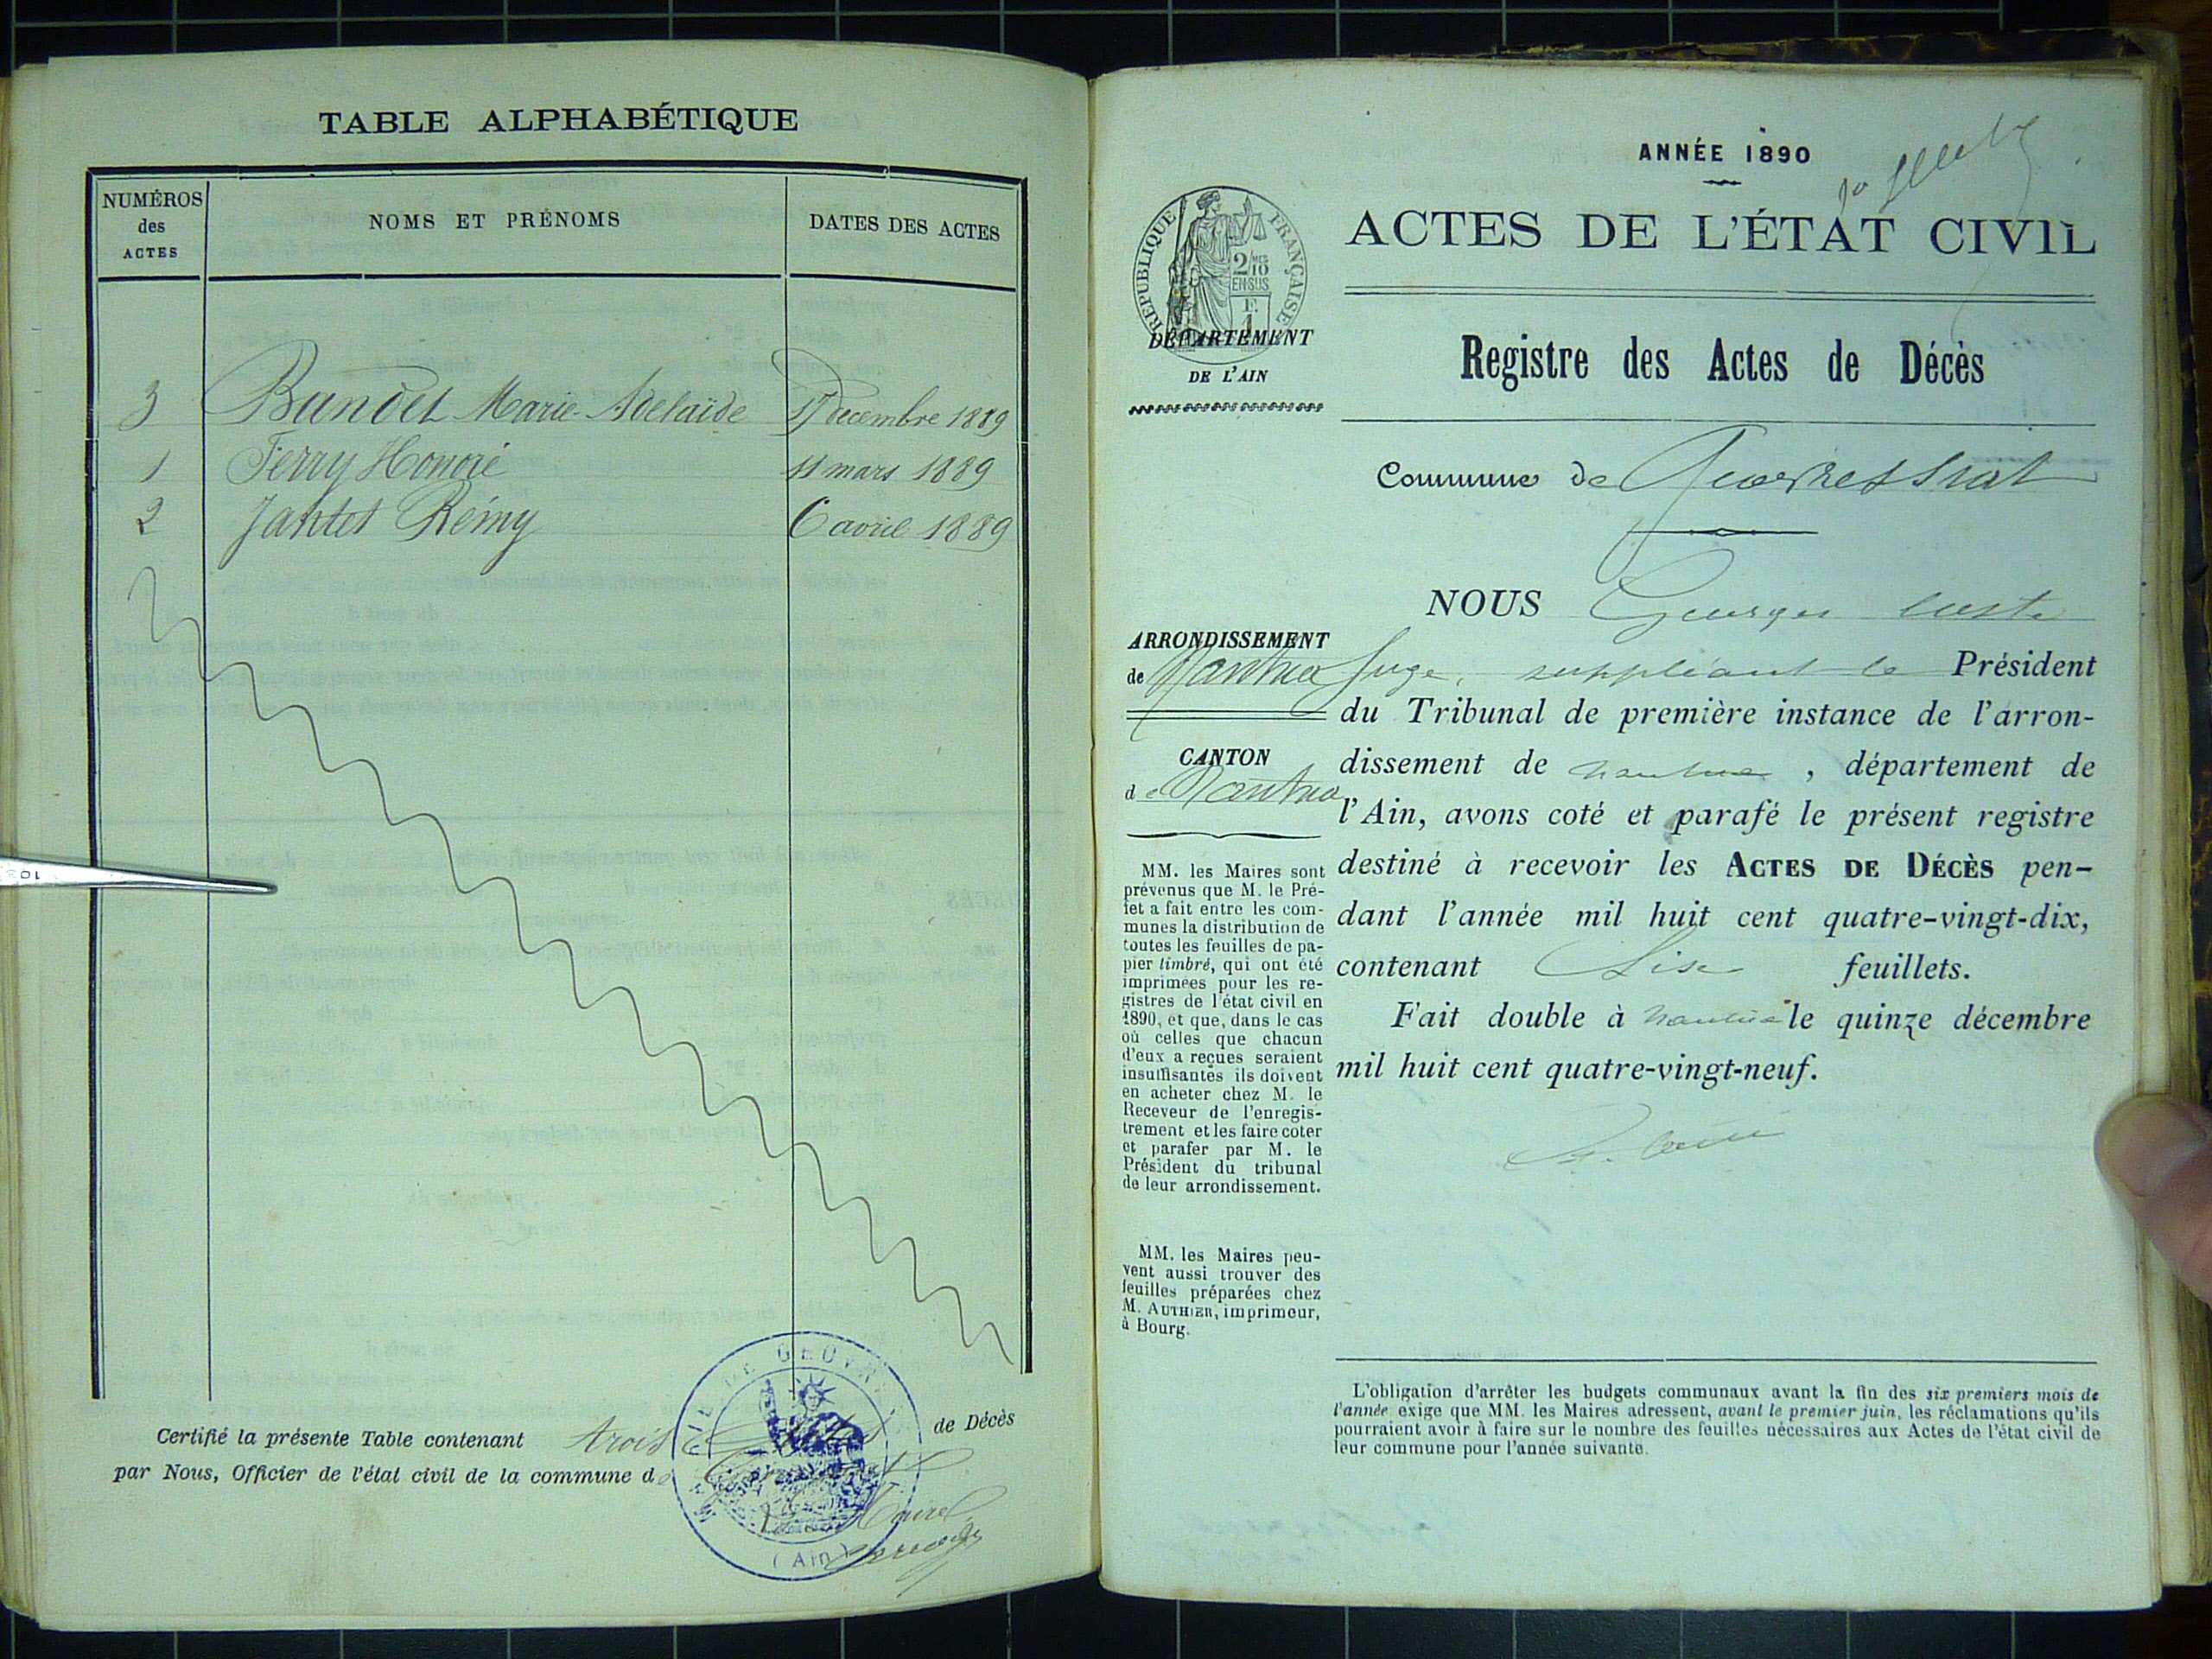 TABLE ALPHABÉTIQUE
NUMÉROS des ACTES
NOMS ET PRÉNOMS
DATES DES ACTES
3 Marie Adelaïde 17 décembre 1889
1 Ferry Honoré 11 mars 1889
2 Jantet Rémy 6 avril 1889
Certifié la présente Table contenant trois actes de Décès
par Nous, Officier de l'état civil de la commune de
(Ain)
ANNÉE 1890
ACTES DE L'ÉTAT CIVIL
RÉPUBLIQUE FRANÇAISE
2/10 EN SUS
F. 1
DÉPARTEMENT
DE L'AIN
Registre des Actes de Décès
Commune de
NOUS Georges
ARRONDISSEMENT
de Nantua
CANTON
de Nantua
Juge, suppléant le Président
du Tribunal de première instance de l'arron-
dissement de Nantua, département de
l'Ain, avons coté et parafé le présent registre
destiné à recevoir les ACTES DE DÉCÈS pen-
dant l'année mil huit cent quatre-vingt-dix,
contenant feuillets.
Fait double à Nantua le quinze décembre
mil huit cent quatre-vingt-neuf.
MM. les Maires sont
prévenus que M. le Pré-
fet a fait entre les com-
munes la distribution de
toutes les feuilles de pa-
pier timbré, qui ont été
imprimées pour les re-
gistres de l'état civil en
1890, et que, dans le cas
où celles que chacun
d'eux a reçues seraient
insuffisantes ils doivent
en acheter chez M. le
Receveur de l'enregis-
trement et les faire coter
et parafer par M. le
Président du tribunal
de leur arrondissement.
MM. les Maires peu-
vent aussi trouver des
feuilles préparées chez
M. AUTHIER, imprimeur,
à Bourg.
L'obligation d'arrêter les budgets communaux avant la fin des six premiers mois de
l'année exige que MM. les Maires adressent, avant le premier juin, les réclamations qu'ils
pourraient avoir à faire sur le nombre des feuilles nécessaires aux Actes de l'état civil de
leur commune pour l'année suivante.